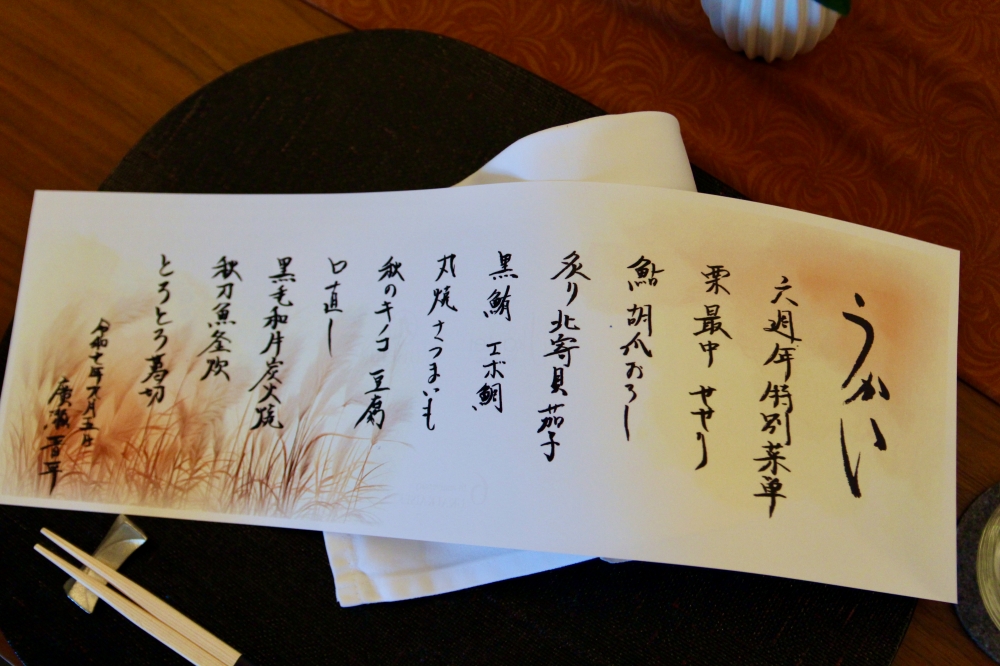 うかい
六週年特別菜単
栗最中 せせり
鮎 胡瓜おろし
炙り北寄貝 茄子
黒鮪 エボ鯛
丸焼さつまいも
秋のキノコ 豆腐
口直し
黒毛和牛炭火焼
秋刀魚釜炊
とろとろ蕎切
令和七年九月五日
廣瀬晋平